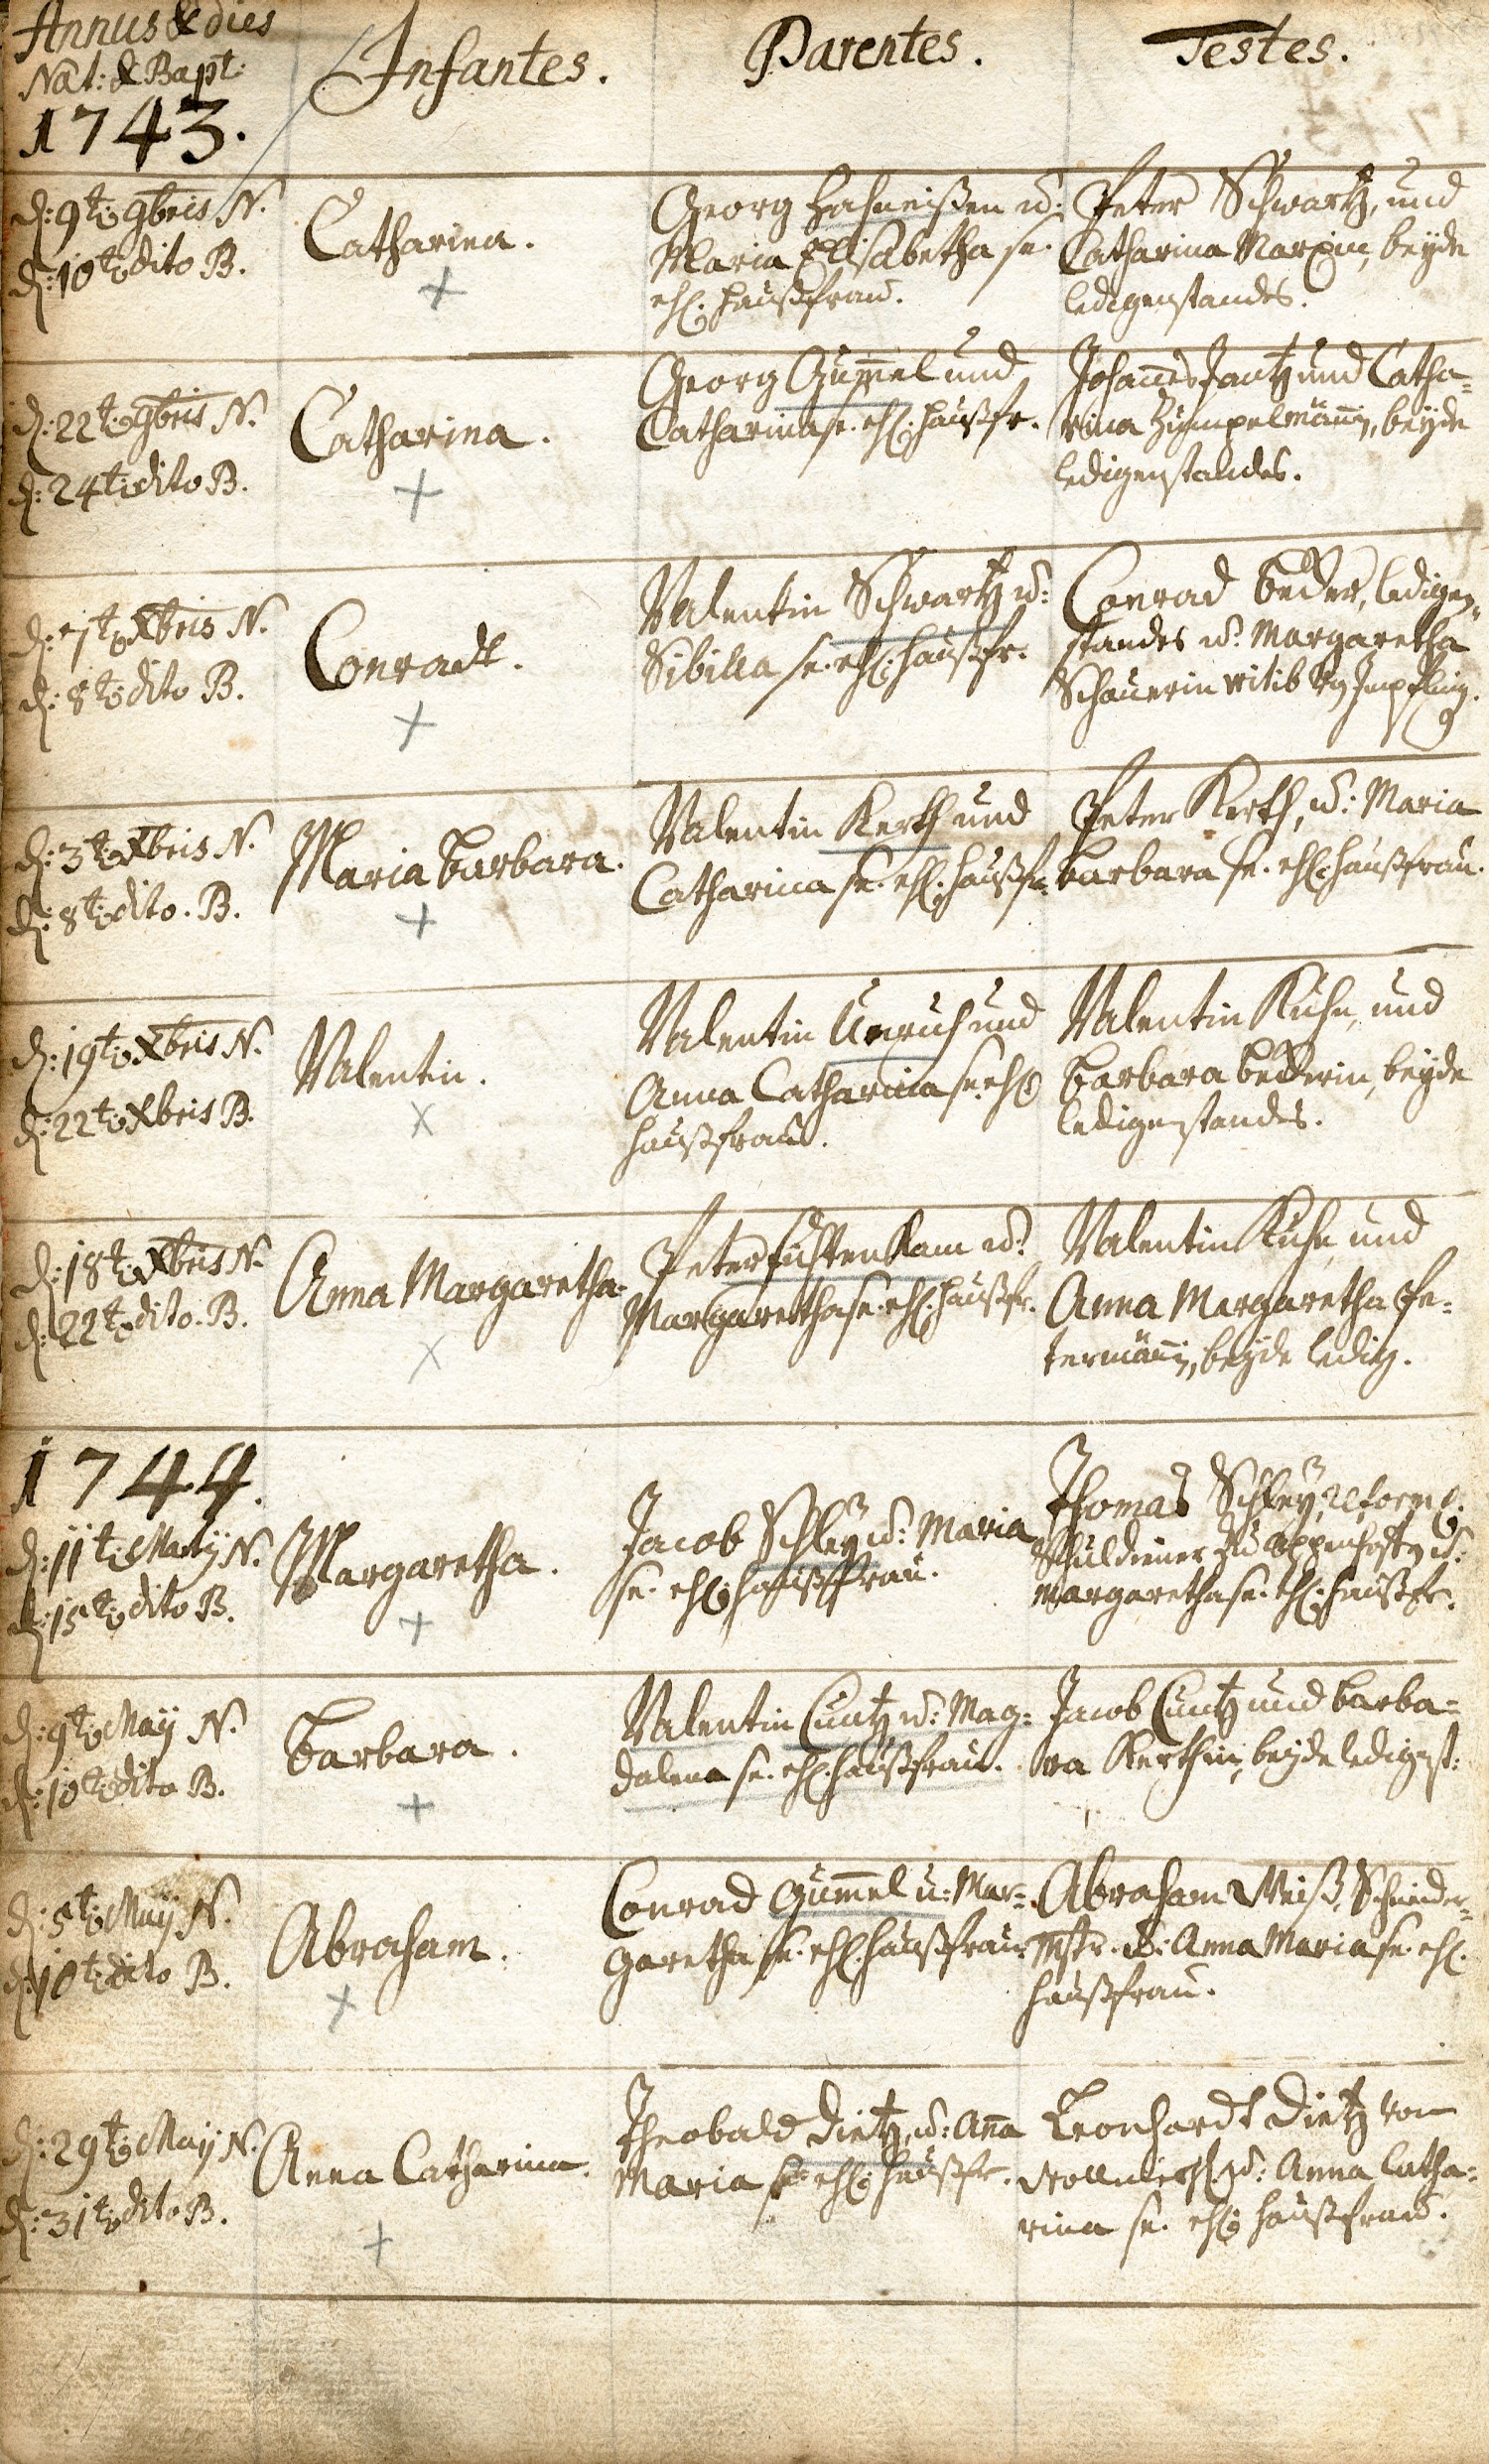 Annus & dies
Nat: & Bapt:
1743.
Infantes.
Parentes.
Testes.
d: 9t. 9bris N.
d: 10t. dito B.
Catharina.
Georg Hahneißen u:
Maria Elisabetha se.
ehl. haußfrau.
Peter Schwartz, und
Catharina Marxin, beyde
ledigenstandes.
d: 22t. 9bris N.
d: 24t. dito B.
Catharina.
Georg Gum̄el und
Catharina se. ehl. haußfr.
Johan̄es Jantz und Catha=
rina Zümpelmän̄in, beyde
ledigenstandes.
d: 7t. Xbris N.
d: 8t. dito B.
Conradt.
Valentin Schwartz u:
Sibilla se. ehl. haußfr.
Conrad Becker, ledigen=
standes u: Margaretha
Schauerin witib von Impfling.
d: 3t. Xbris N.
d: 8t. dito. B.
Maria Barbara.
Valentin Kerth und
Catharina se. ehl. haußfr.
Peter Kerth, u: Maria
Barbara se. ehl. haußfrau.
d: 19t. Xbris N.
d: 22t. Xbris B.
Valentin.
Valentin Unruh und
Anna Catharina se. ehl.
haußfrau.
Valentin Kuhn, und
Barbara Beckerin, beyde
ledigenstandes.
d: 18t. Xbris N.
d: 22t. dito. B.
Anna Margaretha.
Peter Füssenkam u:
Margaretha se. ehl. haußfr.
Valentin Kuhn und
Anna Margaretha Pe=
termän̄in, beyde ledig.
1744.
d: 11t. Martij N.
d: 15t. dito B.
Margaretha.
Jacob Schley u: Maria
se. ehl. haußfrau.
Thomas Schley, reform.
Schuldiener zu Appenhofen u:
Margaretha se. ehl. haußfr.
d: 9t. May N.
d: 10t. dito B.
Barbara.
Valentin Cuntz u: Mag=
dalena se. ehl. haußfrau.
Jacob Cuntz und Barba=
ra Kerthin, beyde ledigst:
d: 5t. May N.
d: 10t. dito B.
Abraham.
Conrad Gum̄el u: Mar=
garetha se. ehl. haußfrau.
Abraham Weiß, Schneider=
mstr. u: Anna Maria se. ehl.
haußfrau.
d: 29t. May N.
d: 31t. dito B.
Anna Catharina.
Theobald Dietz, u: An̄a
Maria se. ehl. haußfr.
Leonhardt Dietz von
Wollmesh. u: Anna Catha=
rina se. ehl. haußfrau.